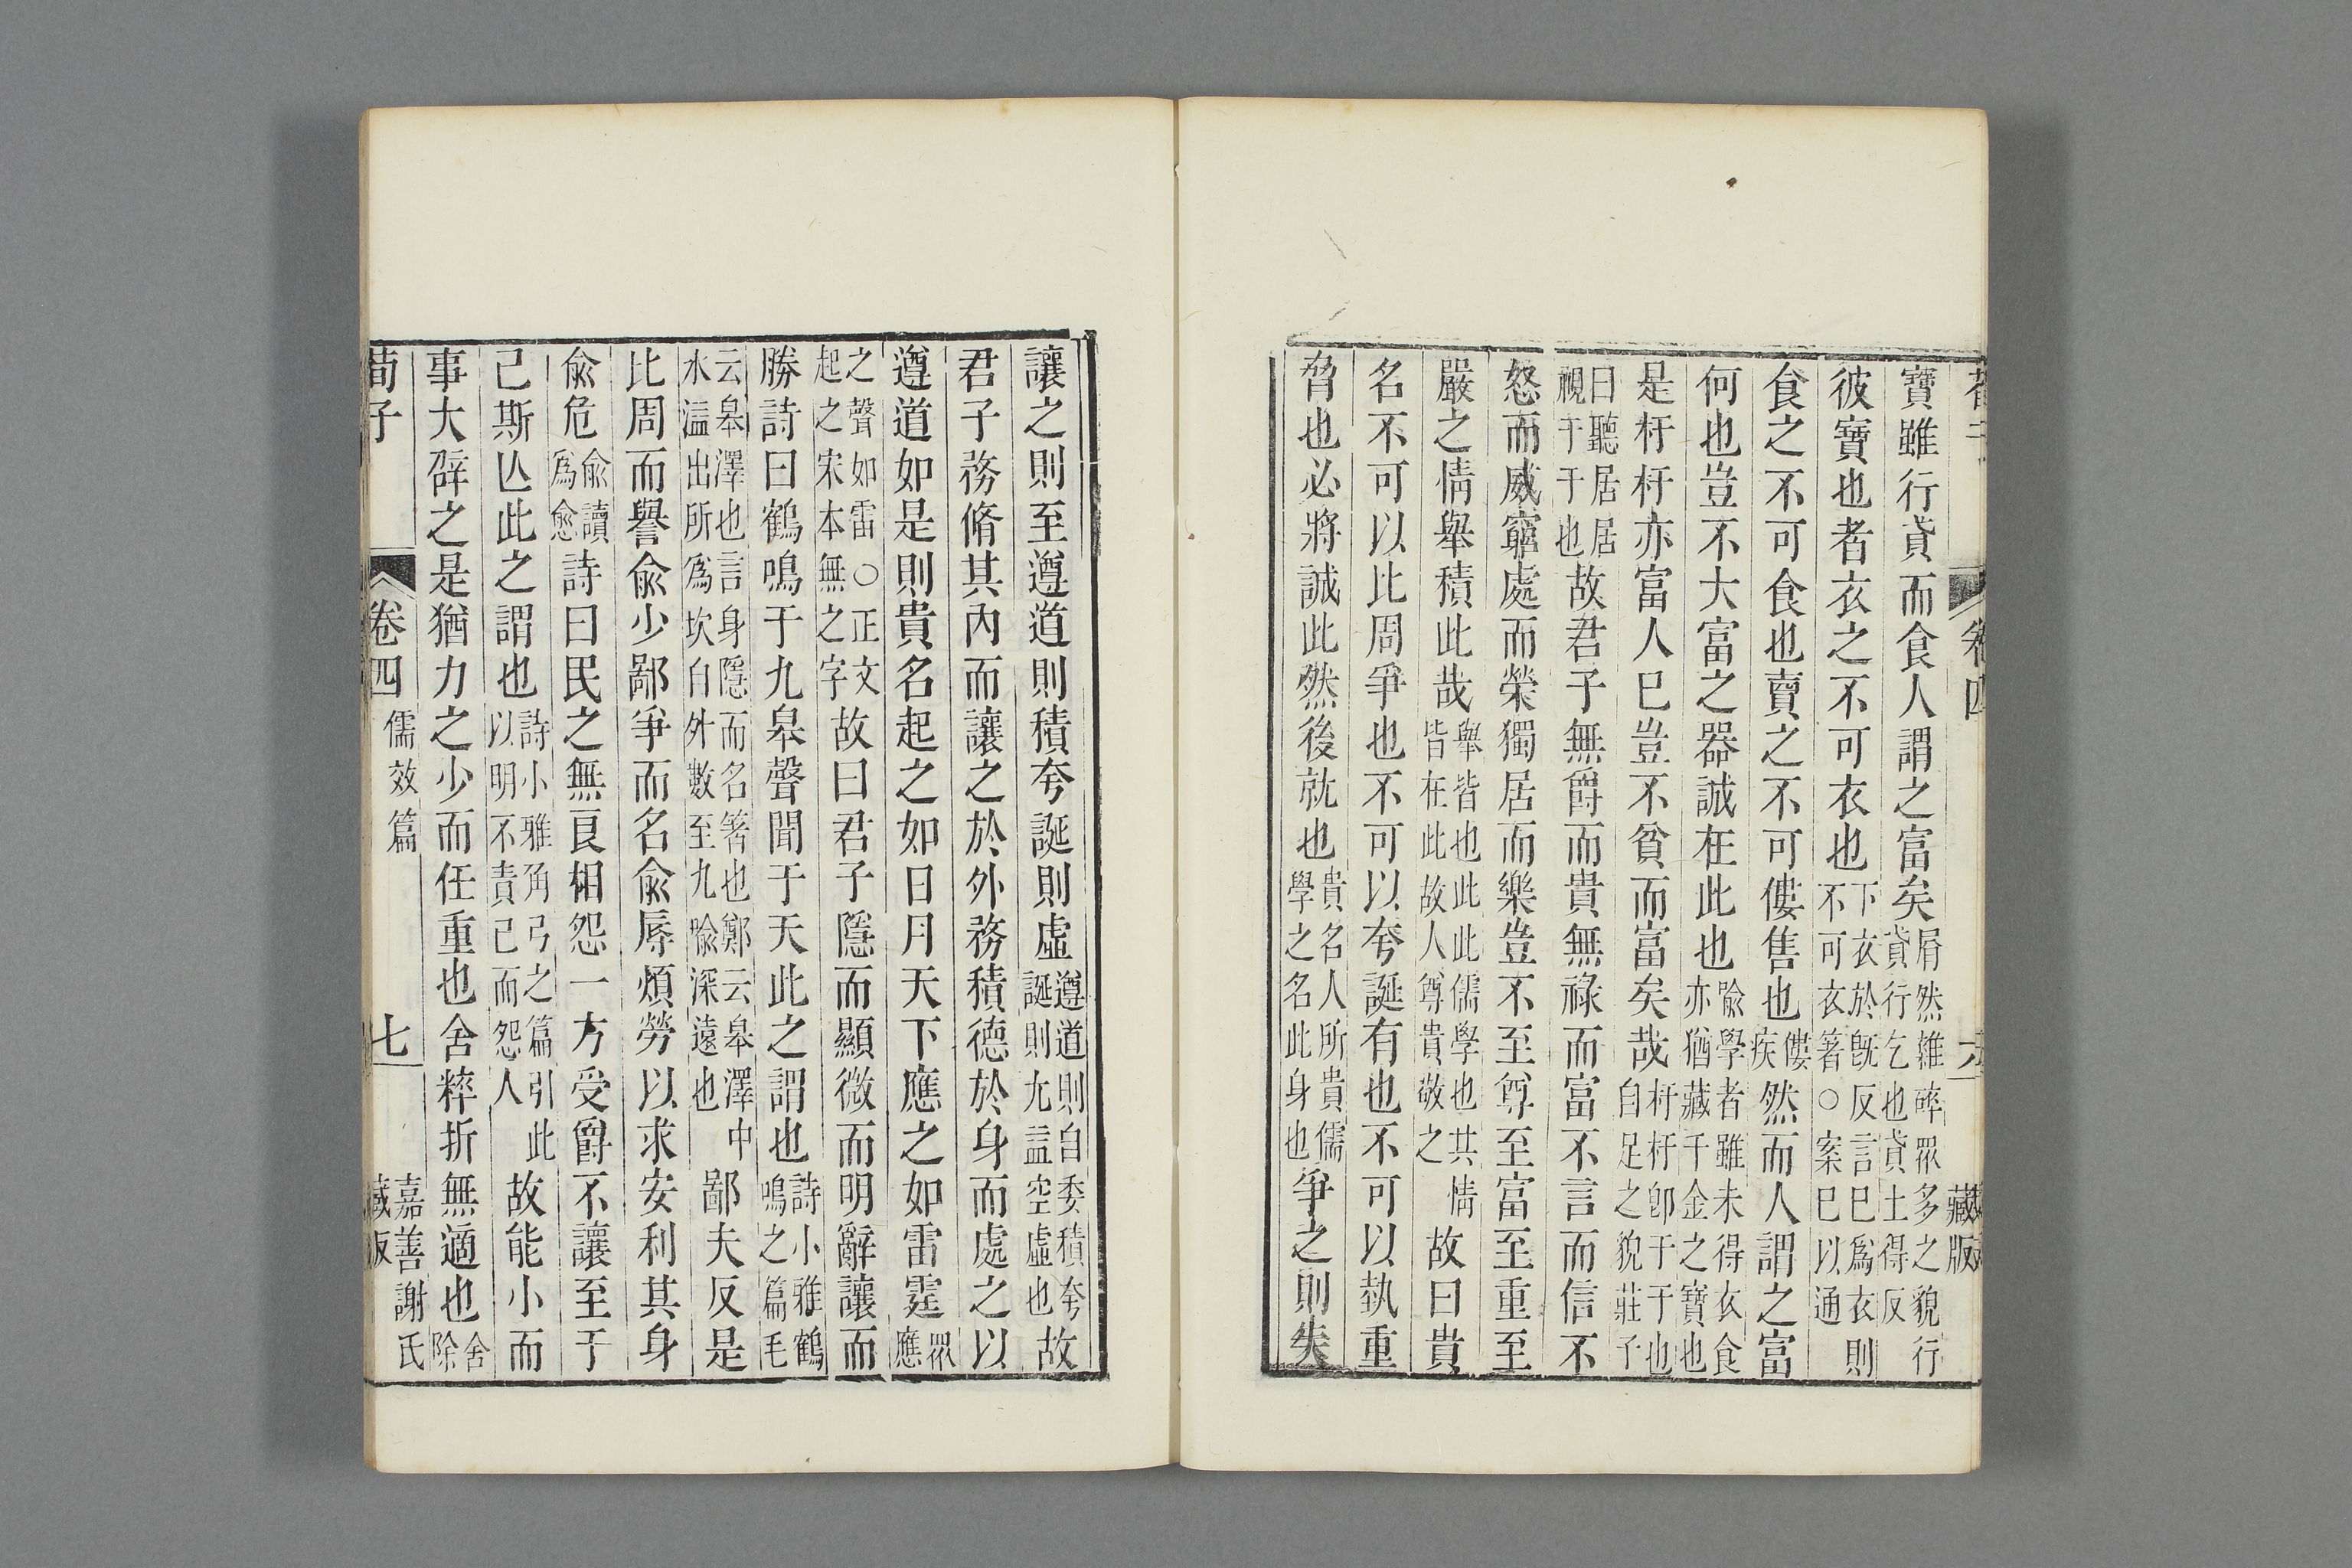 寶雖行貣而食人謂之富矣屑然雜碎眾多之貌行貣行乞也貣土得反
彼寶也者衣之不可衣也下衣於旣反言已爲衣則不可衣箸○案已以通
食之不可食也賣之不可僂售也僂疾然而人謂之富
何也豈不大富之器誠在此也喩學者雖未得衣食亦猶藏千金之寶也
是杅杅亦富人巳豈不貧而富矣哉杅杅卽于于也自足之貌莊子
曰聽居居視于于也故君子無爵而貴無祿而富不言而信不
怒而威窮處而榮獨居而樂豈不至尊至富至重至
嚴之情舉積此哉舉皆也此此儒學也其情皆在此故人尊貴敬之故曰貴
名不可以比周爭也不可以夸誕有也不可以埶重
脅也必將誠此然後就也貴名人所貴儒學之名此身也爭之則失
讓之則至遵道則積夸誕則虛遵道則自委積夸誕則尢益空虛也故
君子務脩其內而讓之於外務積德於身而處之以
遵道如是則貴名起之如日月天下應之如雷霆眾應
之聲如雷○正文起之宋本無之字故曰君子隱而顯微而明辭讓而
勝詩曰鶴鳴于九皋聲聞于天此之謂也詩小雅鶴鳴之篇毛
云皋澤也言身隱而名箸也鄭云皋澤中水溢出所爲坎自外數至九喩深遠也鄙夫反是
比周而譽兪少鄙爭而名兪辱煩勞以求安利其身
兪危兪讀爲愈詩曰民之無良相怨一方受爵不讓至于
己斯亾此之謂也詩小雅角弓之篇引此以明不責己而怨人故能小而
事大辟之是猶力之少而任重也舍粹折無適也舍除
荀子
卷四
儒效篇
七
嘉善謝氏
藏版